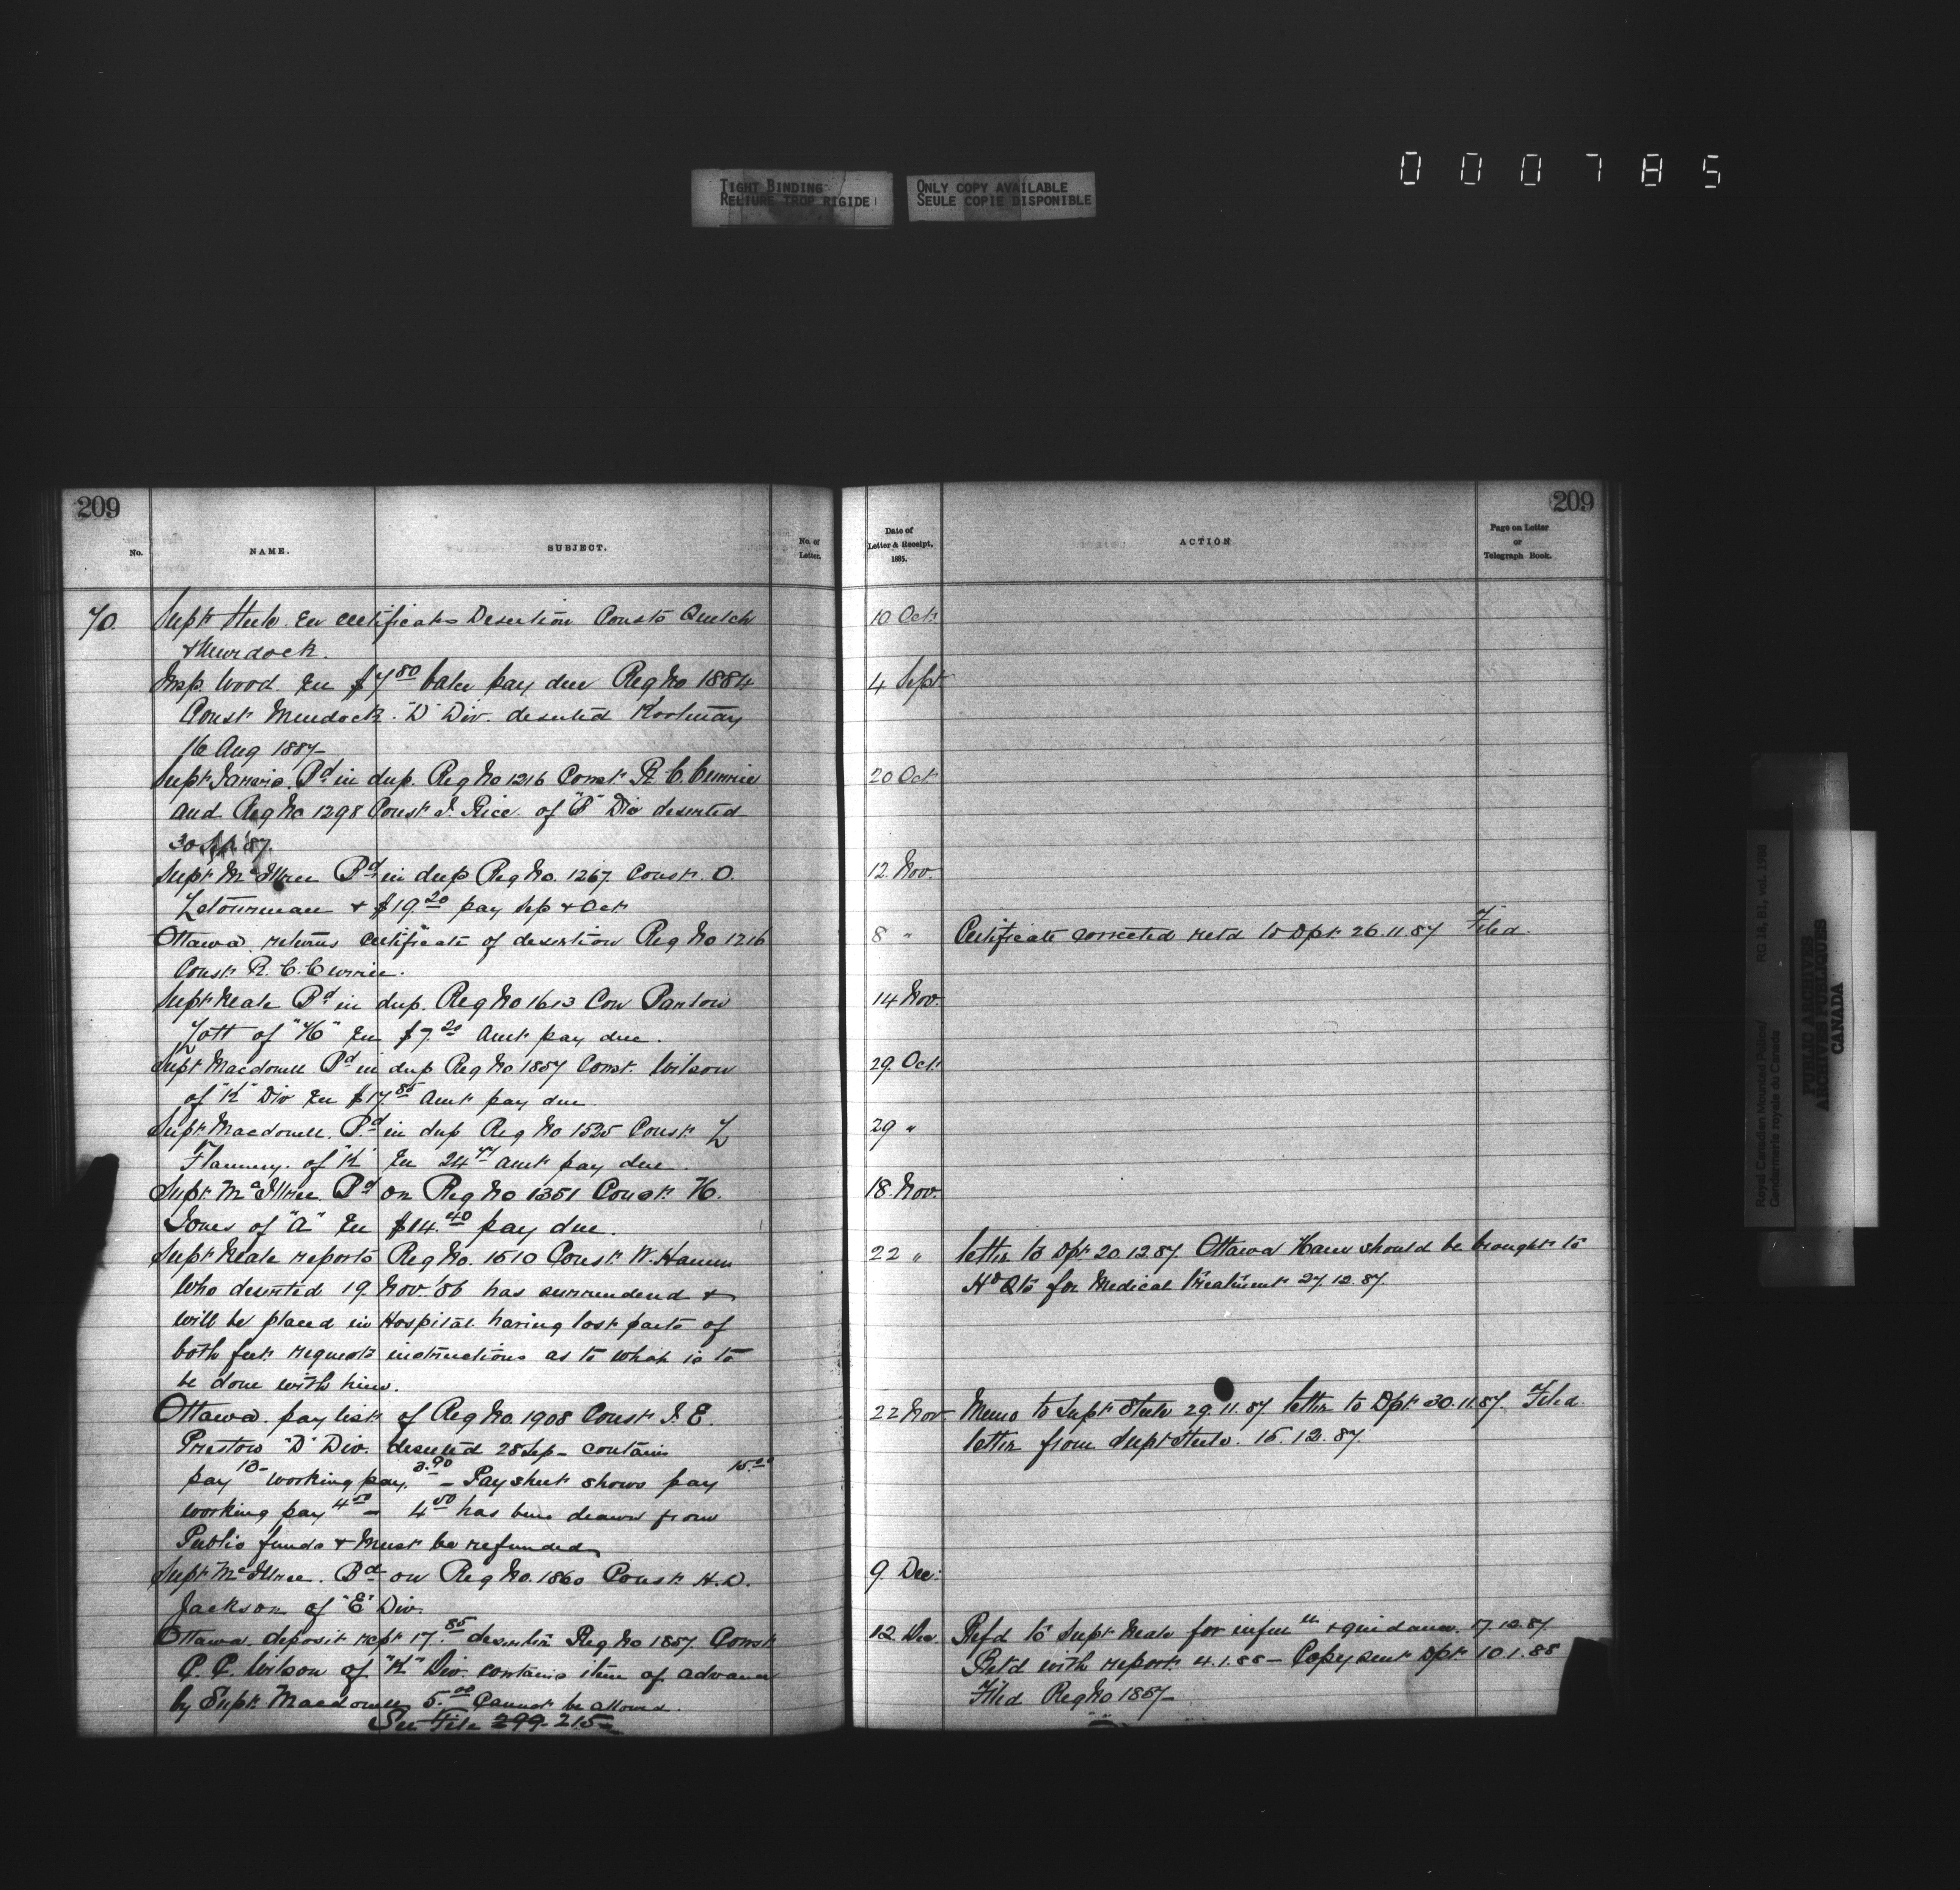 000785
TIGHT BINDING
RELIURE TROP RIGIDE
ONLY COPY AVAILABLE
SEULE COPIE DISPONIBLE
209
No.
NAME.
SUBJECT.
No. of
Letter.
70.
Supt Steele. En certificates Desertion Consts Quelch
& Murdock.
Insp. Wood. En $7.80 balce pay due Reg No 1884
Const Murdock. "D" Div. deserted Kootenay
16 Aug 1887-
Supt Jarvis. Bd in dup. Reg No 1216 Const R. C. Currie
and Reg No 1298 Const J. Rice. of "B" Div deserted
30 '87.
Supt McIllree Bd in dup Reg No. 1267. Const. O.
Letourneau & $19.20 pay Sep & Oct
Ottawa. returns certificate of desertion Reg No 1216
Const R. C. Currie.
Supt Neale Bd in dup. Reg No 1613 Con Panton
Lott of "H" En $7.20 Amt pay due.
Supt Macdonell Bd in dup Reg No 1857 Const. Wilson
of "K" Div En $17.85 Amt pay due
Supt Macdonell. Bd in dup Reg No 1525 Const L
Flannery. of "K" En 24.47 amt pay due.
Supt McIllree. Bd on Reg No 1351 Const H.
Jones of "A" En $14.40 pay due.
Supt Neale reports Reg No. 1510 Const W. Hamm
who deserted 19. Nov. '86 has surrendered &
will be placed in Hospital having lost parts of
both feet requests instructions as to what is to
be done with him.
Ottawa. pay list of Reg No. 1908 Const J. E.
Preston "D" Div. deserted 28 Sep- contains
pay 13- working pay. 3.90 - Pay sheet shows pay 15.00
working pay 4.50 - 4.50 has been drawn from
Public funds & must be refunded
Supt McIllree. Bd on Reg No. 1860 Const H.D.
Jackson of "E" Div.
Ottawa. deposit rcpt 17.85 desertion Reg No 1857. Const
C. C. Wilson of "K" Div. contains item of advance
by Supt Macdonell 5.00 Cannot be allowed.
See File 299-215-
209
Date of
Letter & Receipt,
1885.
ACTION
Page on Letter
or
Telegraph Book.
10 Oct.
4 Sept.
20 Oct
12. Nov.
8 " Certificate corrected retd to Dpt 26.11.87 Filed.
14 Nov.
29. Oct.
29 "
18. Nov.
22 " letter to Dpt 20.12.87. Ottawa Hamm should be brought to
Hd Qts for Medical treatment 27.12.87.
22 Nov Memo to Supt Steele 29.11.87. letter to Dpt 30.11.87. Filed.
letter from Supt Steele. 15.12.87.
9. Dec.
12 Dec Refd to Supt Neale for infm & guidance. 17.12.87.
Retd with report 4.1.88 - Copy sent Dpt 10.1.88
Filed Reg No 1857-
Royal Canadian Mounted Police/
Gendarmerie royale du Canada
RG 18, B1, vol. 1988
PUBLIC ARCHIVES
ARCHIVES PUBLIQUES
CANADA